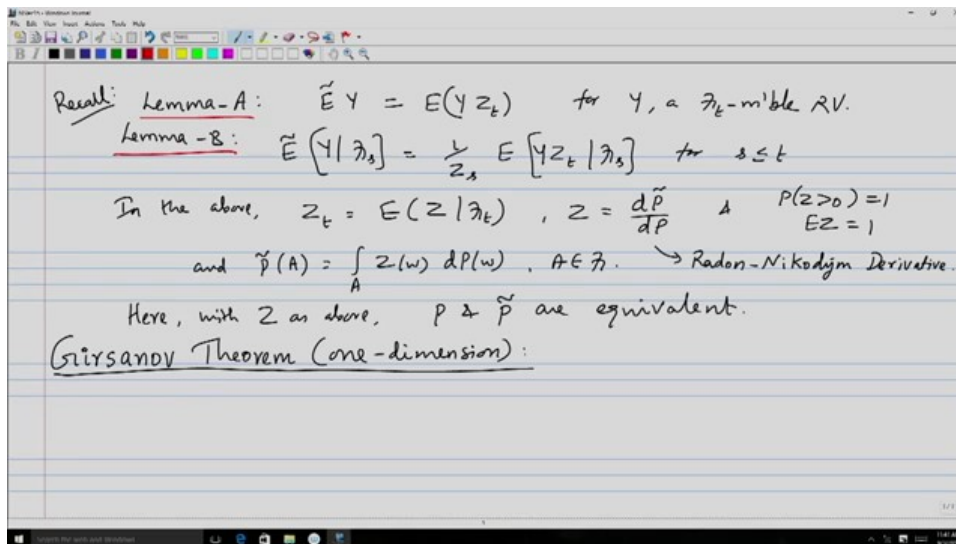 File Edit View Insert Actions Tools Help
Recall: Lemma-A: Ẽ Y = E(Y Z_t) for Y, a ℱ_t-m'ble RV.
Lemma-B: Ẽ[Y|ℱ_s] = 1/Z_s E[YZ_t|ℱ_s] for s≤t
In the above, Z_t = E(Z|ℱ_t), Z = dP̃/dP & P(Z>0)=1
EZ=1
and P̃(A) = ∫_A Z(w) dP(w), A∈ℱ. → Radon-Nikodým Derivative.
Here, with Z as above, P & P̃ are equivalent.
Girsanov Theorem (one-dimension):
1/1